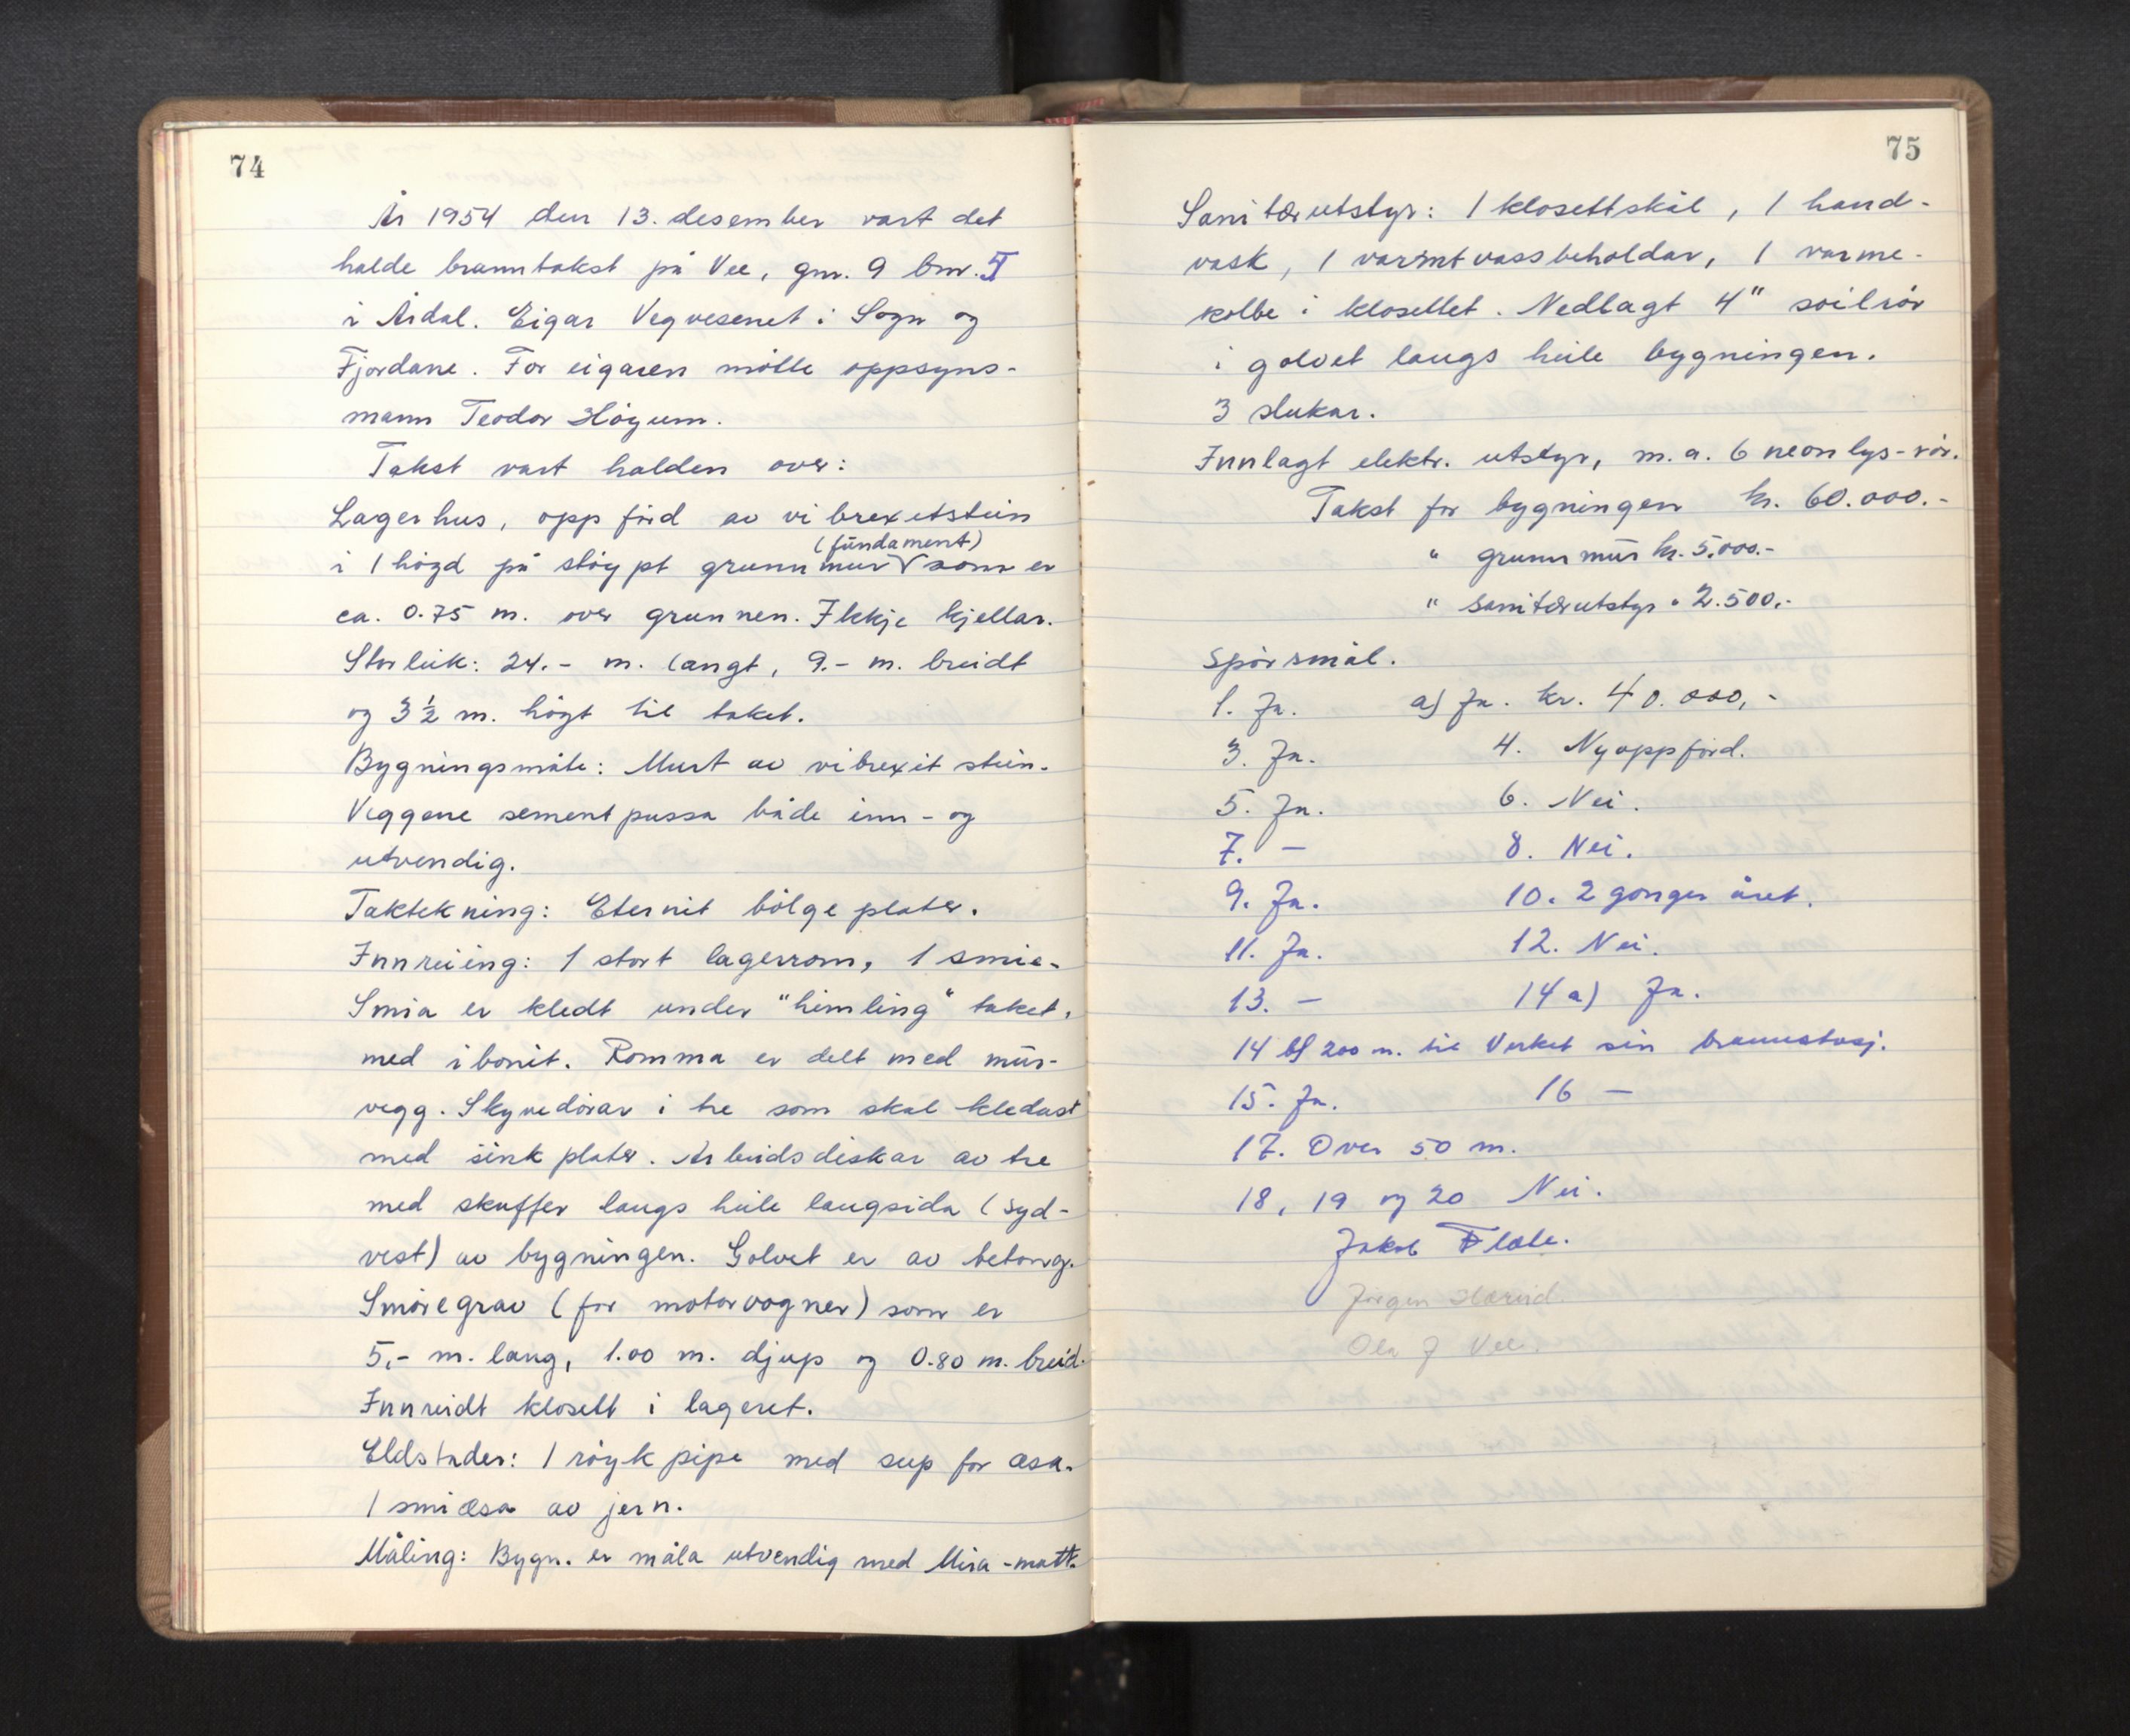 74
År 1954 den 13. desember vart det
halde branntakst på Vee, gnr. 9 bnr. 5
i Årdal. Eigar Vegvesenet i Sogn og
Fjordane. For eigaren møtte oppsyns-
mann Teodor Høgum.
Takst vart halden over:
Lagerhus, oppförd av vibrexitstein
(fundament)
i 1 högd på stöypt grunnmur som er
ca. 0.75 m. over grunnen. Ikkje kjellar.
Storleik: 24.- m. langt, 9.- m. breidt
og 3 1/2 m. högt til taket.
Bygningsmåte: Murt av vibrexit stein.
Veggene sementpussa både inn- og
utvendig.
Taktekning: Eternit bölgeplater.
Innreiing: 1 stort lagerrom, 1 smie.
Smia er kledt under "himling" taket,
med ibonit. Romma er delt med mur-
vegg. Skyvedörar i tre som skal kledast
med sinkplater. Arbeidsdiskar av tre
med skuffer langs heile langsida (syd-
vest) av bygningen. Golvet er av betong.
Smöregrav (for motorvogner) som er
5,- m. lang, 1.00 m. djup og 0.80 m. breid.
Innreidt klosett i lageret.
Eldstader: 1 röykpipe med sup for æsa.
1 smiæsa av jern.
Måling: Bygn. er måla utvendig med Mira-matt.
75
Sanitærutstyr: 1 klosettskål, 1 hand-
vask, 1 varmtvassbeholdar, 1 varme-
kolbe i klosettet. Nedlagt 4" soilrör
i golvet langs heile bygningen.
3 slukar.
Innlagt elektr. utstyr, m.a. 6 neonlys-rör.
Takst for bygningen kr. 60.000.-
" grunnmur kr. 5.000.-
" sanitærutstyr " 2.500,-
Spörsmål.
1. Ja. a) Ja. kr. 40.000,-
3. Ja. 4. Nyoppförd.
5. Ja. 6. Nei.
7. — 8. Nei.
9. Ja. 10. 2 gonger året.
11. Ja. 12. Nei.
13. — 14 a) Ja.
14 b) 200 m. til Verket sin brannstasj.
15. Ja. 16 —
17. Over 50 m.
18, 19 og 20 Nei.
Jakob
Jörgen
Ola J Vee.